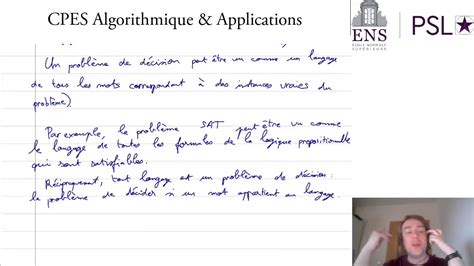 CPES Algorithmique & Applications
ENS
ÉCOLE NORMALE
SUPÉRIEURE
PSL
Un problème de décision peut être vu comme un langage
de tous les mots correspondant à des instances vraies du
problème)
Par exemple, le problème SAT peut être vu comme
le langage de toutes les formules de la logique propositionnelle
qui sont satisfiables.
Réciproquement, tout langage est un problème de décision:
le problème de décider si un mot appartient au langage.